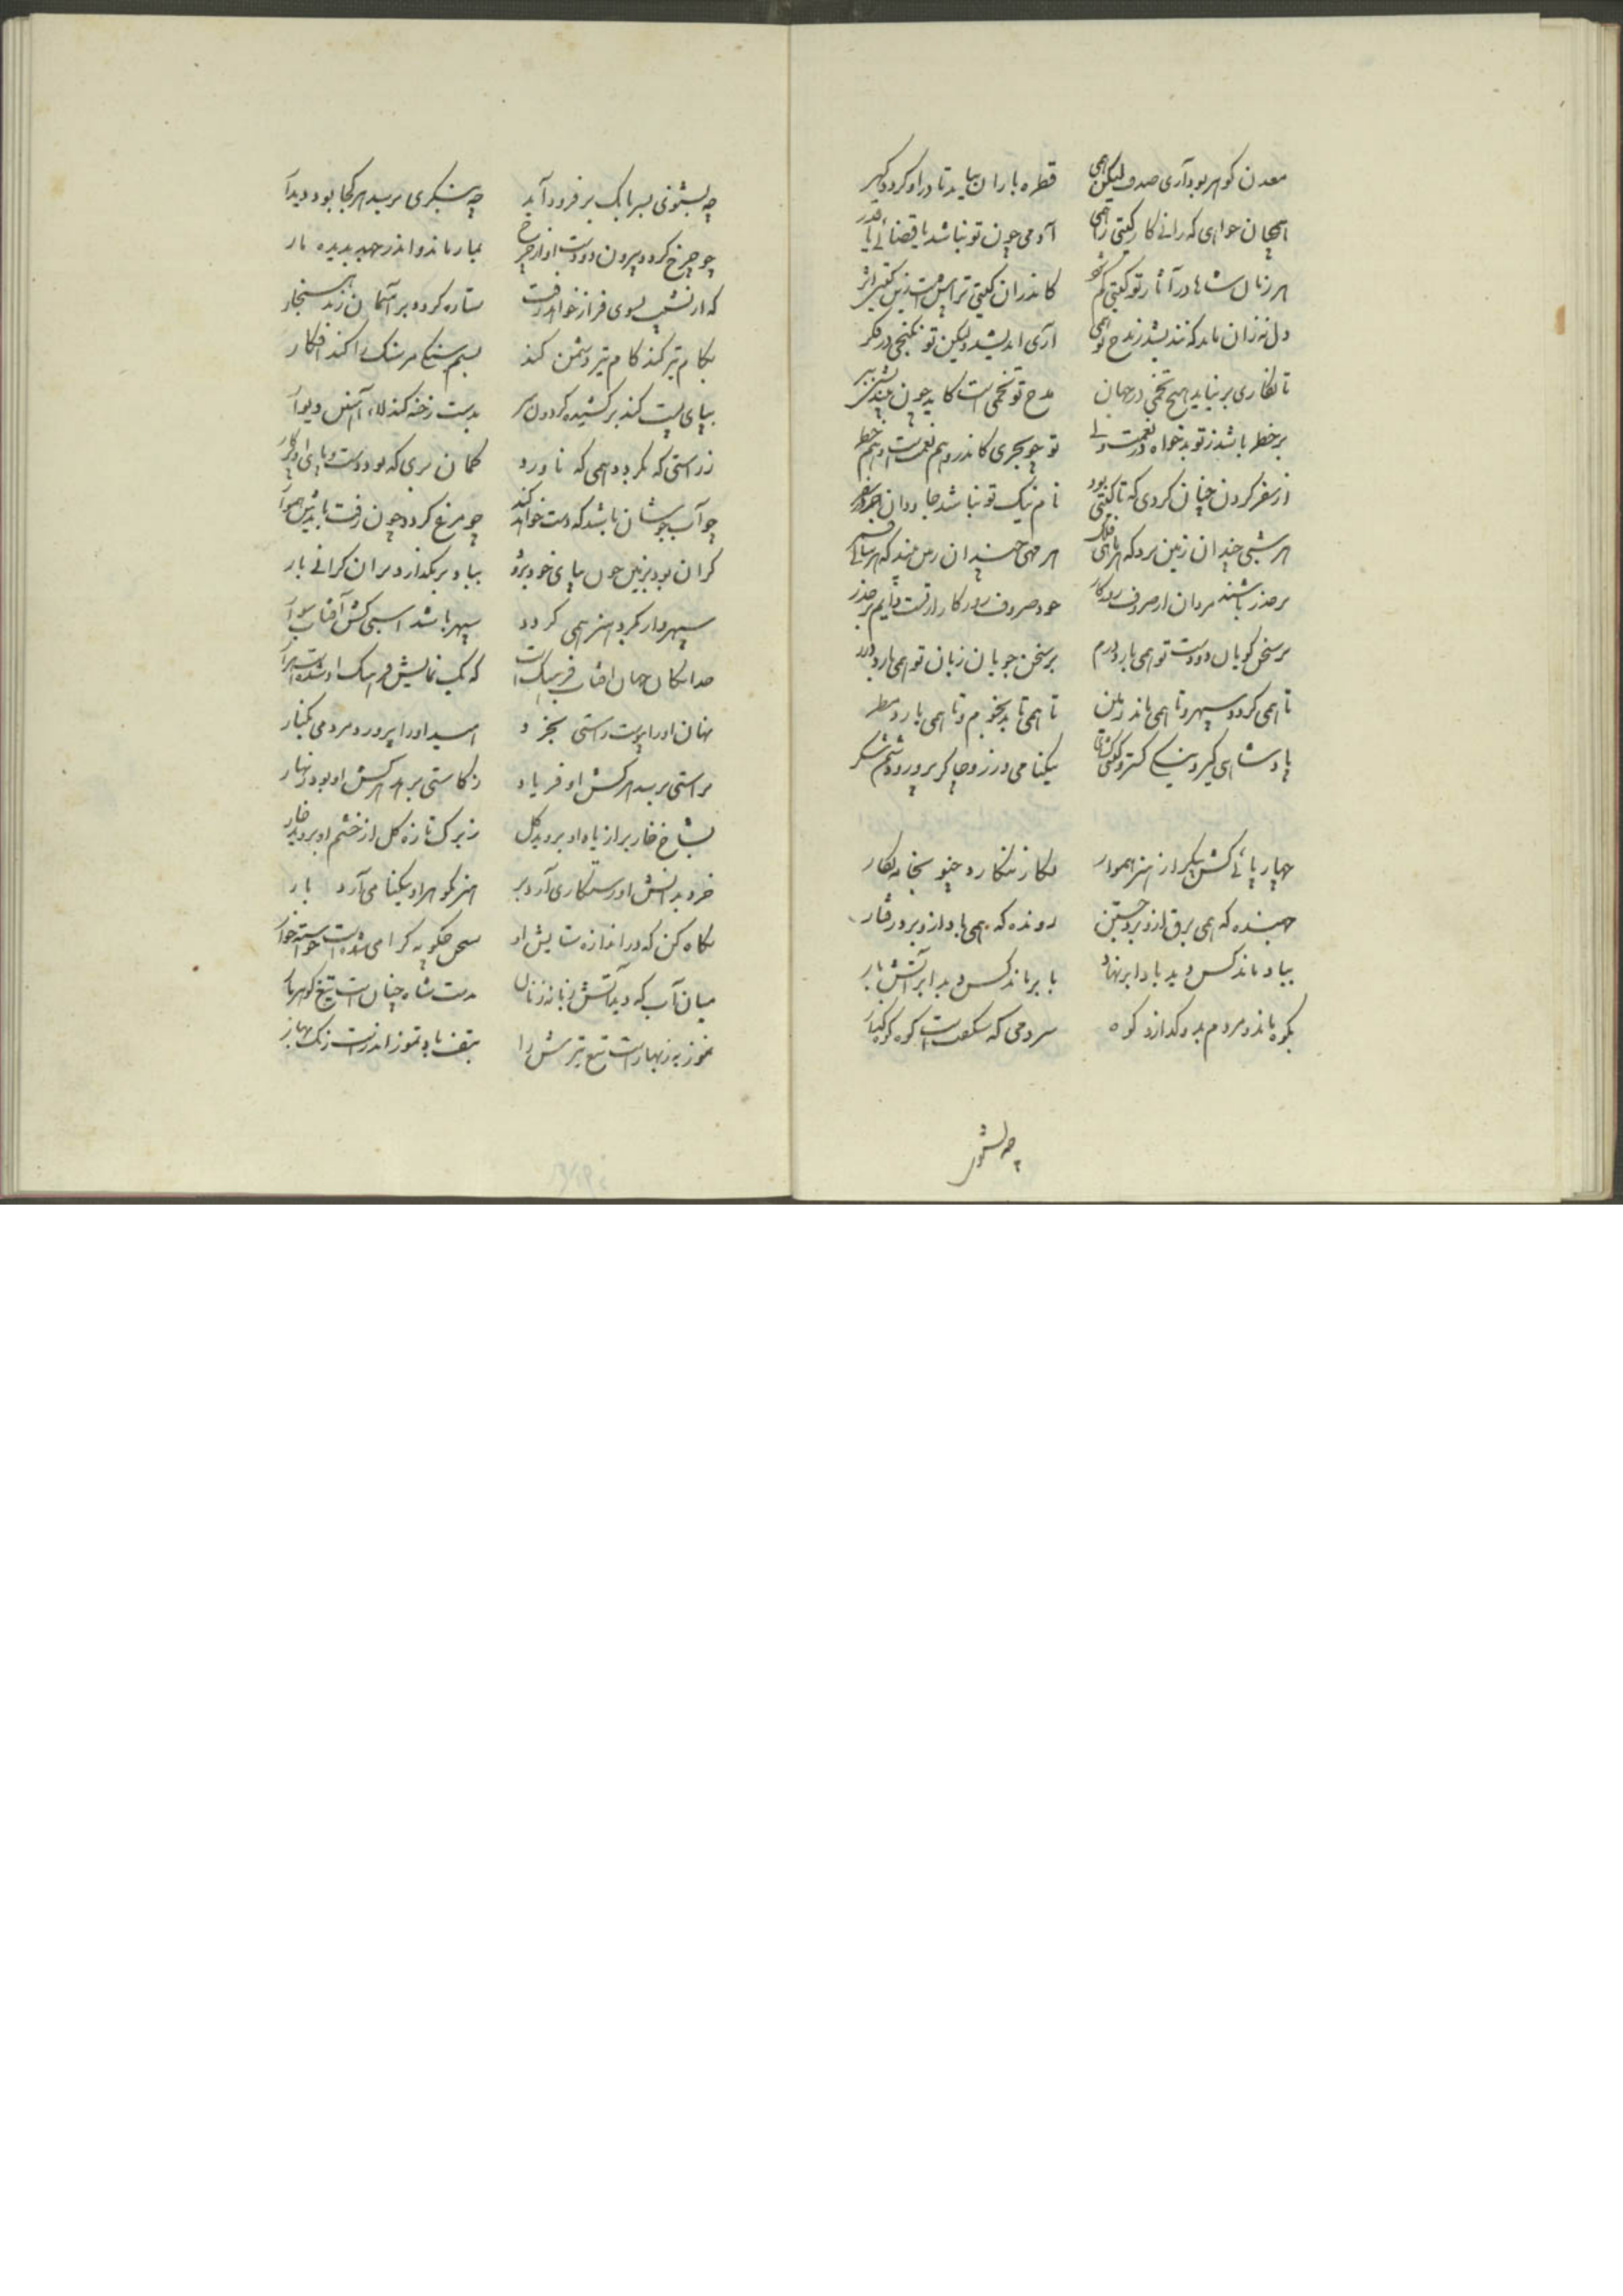 معدن گوهر بود آری صدف لیکن همی قطره باران بباید تا در او گردد گهر
همچنان خواهی که رانی کار گیتی را همی آدمی چون تو نباشد یا قضائی یا قدر
هر زمان شاها در آثار تو گیتی گم شود کاندران گیتی ترا بیش است زین گیتی اثر
دل نه زان ماند که نندیشد ز مدح تو همی آری اندیشد ولیکن تو نگنجی در فکر
تا نکاری بر نیاید هیچ تخمی در جهان مدح تو تخمی است کاید چون بیندیشند بر
بر خطر باشد ز تو بدخواه در نعمت ولی تو چو بحری کاندرو هم نعمت است و هم خطر
از سفر کردن چنان کردی که تا گیتی بود نام نیک تو نباشد جاودان جز در سفر
هر شبی چندان زمین برد که هر ماهی فلک هر مهی چندان زمین بیند که هر سالی قمر
بر حذر باشند مردان از صروف روزگار خود صروف روزگار از تست دایم بر حذر
بر سخن گویان دو دست تو همی بارد درم بر سخن جویان زبان تو همی بارد درر
تا همی گردد سپهر و تا همی ماند زمین تا همی تابد نجوم و تا همی بارد مطر
پادشاهی گیر و نیکی گستر و گیتی گشای نیکنامی ورز و چاکر پرور و دشمن شکر
چهار پائی کش پیکر از هنر هموار نگار ننگارد چنو بخامه نگار
جهنده که همی برق ازو برد جستن رونده که همی باد ازو برد رفتار
بباد ماند کس دید باد ابر نهاد بابر ماند کس دید ابر آتش بار
بکوه ماند و مردم بدو گدازد کوه مردمی که شگفت است کوه کوه گذار
چه بشنوی
چه بشنوی بسر بانگ بر فرود آید چه بنگری برسد هر کجا بود دیدار
چو چرخ گردد بیرون دودست او از چرخ بمار ماند و اندر جهد بدیده مار
که از نشیب بسوی فراز خواهد رفت ستاره گردد و بر آسمان زند هنجار
بکام تیر کند کام تیر دشمن کند بسم سنگی مر سنگ را کند افکار
بپای پست کند برکشیده گردون سر بدست رخنه کند لاد آهنین دیوار
ز راستی که بگردد همی که ناورد گمان بری که بود دست و پای او پرگار
چو آب جوشان باشد که دست خواهد کند چو مرغ گردد چون رفت باید پیش هموار
گران بود بزمین چون بپای خود برود بباد بر بگذارد بران گرانی بار
سپهروار بگرد هنر همی گردد سپهر باشد اسبی کش آفتاب سوار
خدایگان جهان آفتاب فرهنگ است که یک نمایش فرهنگ او شده است هزار
نهان او را پیوست راستی بخرد امید او را پرورد مردمی بکنار
براستی برسد هر کش او فریاد ز کاستی برهد هر کش او بود زنهار
بشاخ خار بر از یاد او بروید گل ز برگ تازه گل از خشم او بروید خار
خرد بدانش او رستگاری آرد بر هنر بگوهر او نیکنامی آرد بار
نگاه کن که در اندازه ستایش او سخن چگونه گرامی شده است خواسته خوار
میان آب که دید آتش زبانه زنان بدست شاه چنان است تیغ گوهربار
تموز به ز بهار است تیغ تیزش را بتف باد تموز اندر است رنگ بهار